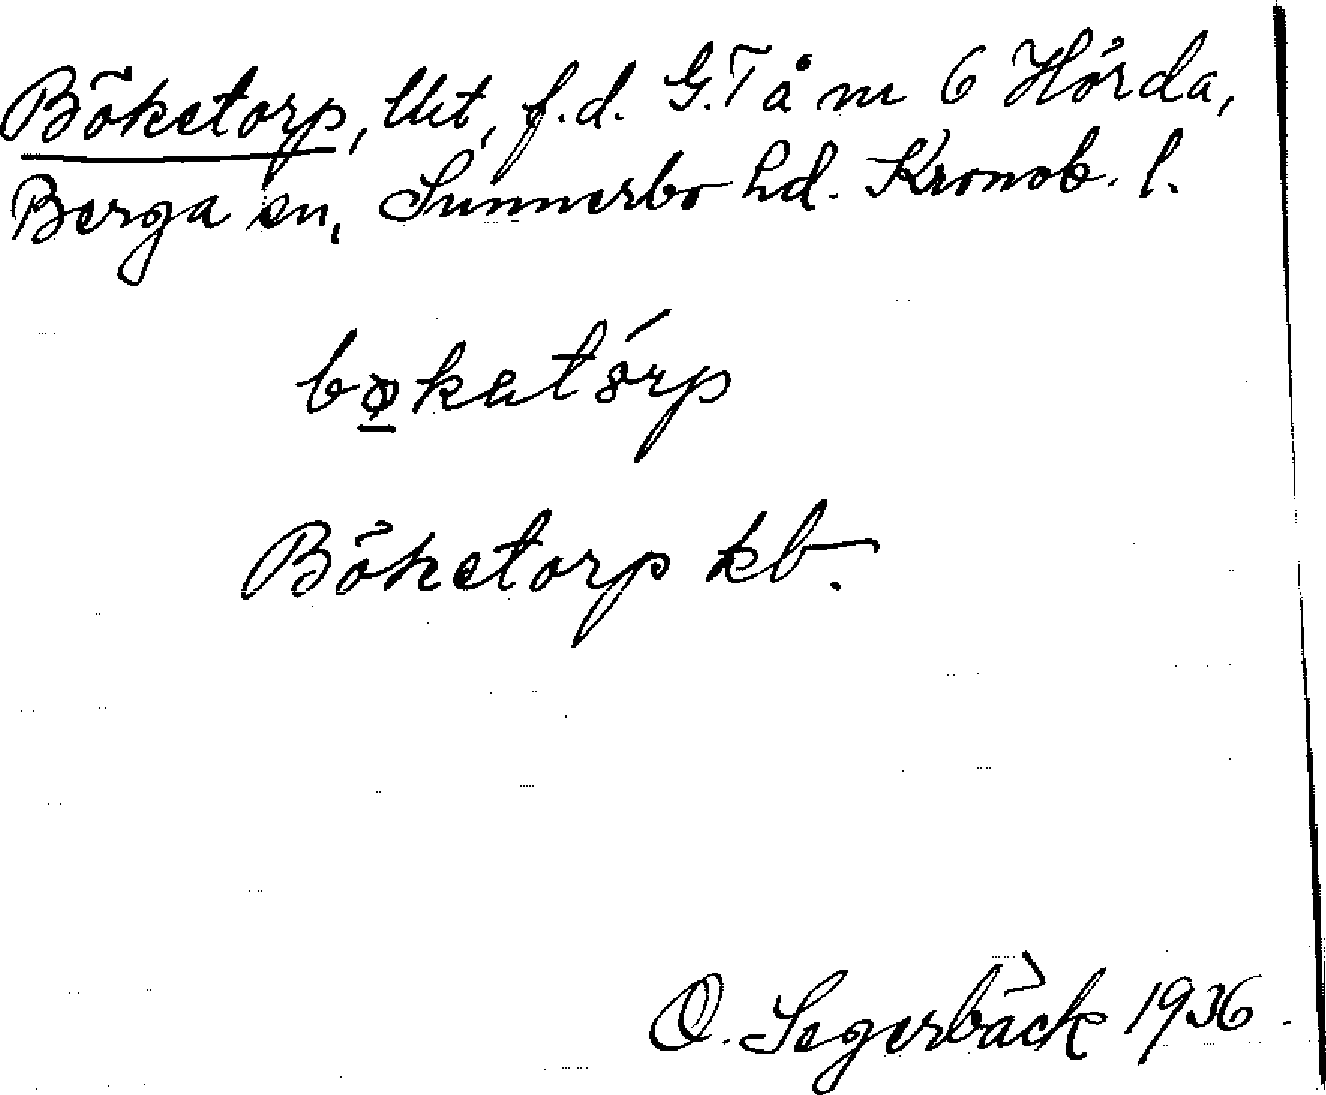 Böketorp, Utt, f.d. G.T å nr 6 Hörda,
Berga sn, Sunnerbo hd. Kronob. l.
bøkatórp
Böketorp kb.
O. Segerbäck 1936.